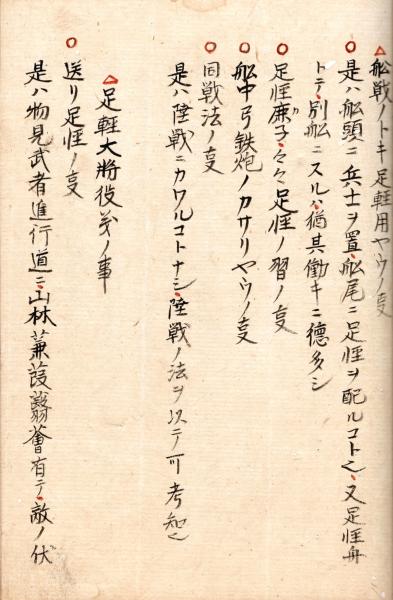 △船戦ノトキ足軽用ヤウノ叓
○是ハ船頭ニ兵士ヲ置、船尾ニ足軽ヲ配ルコト之、又足軽舟
トテ、別船ニスルハ、猶其働キニ徳多シ
○足軽廉子々々足軽ノ習ノ叓
○船中弓鉄炮ノカサリヤウノ叓
○同戦法ノ叓
是ハ陸戦ニカワルコトナシ、陸戦ノ法ヲ以テ可考知之
△足軽大将役義ノ事
○送リ足軽ノ叓
是ハ物見武者進行道ニ、山林蒹葭翳薈有テ、敵ノ伏